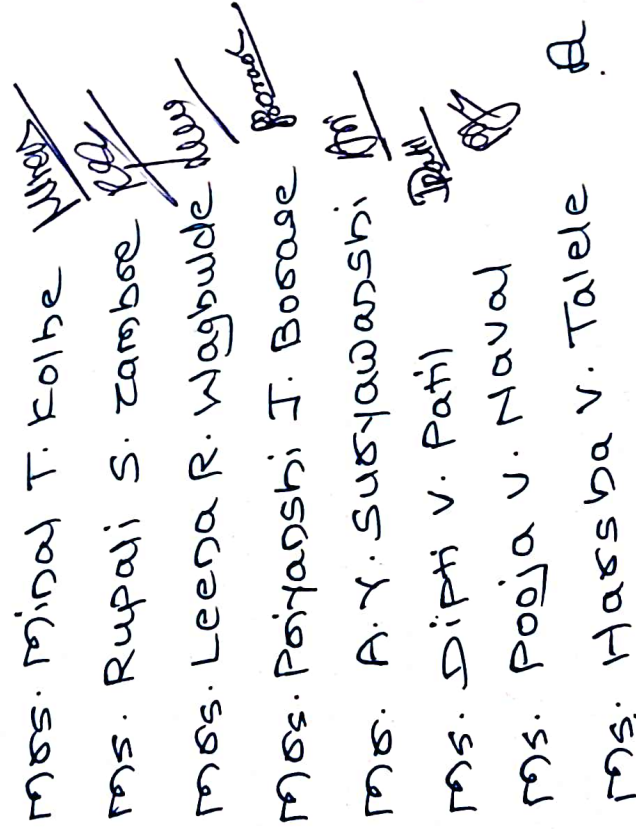 Mrs. Minal T. Kolhe
Ms. Rupali S. Zambre
Mrs. Leena R. Waghulde
Mrs. Priyanshi J. Borase
Mr. A.Y. Suryawanshi
Ms. Dipti V. Patil
Ms. Pooja V. Naval
Ms. Harssha V. Talele